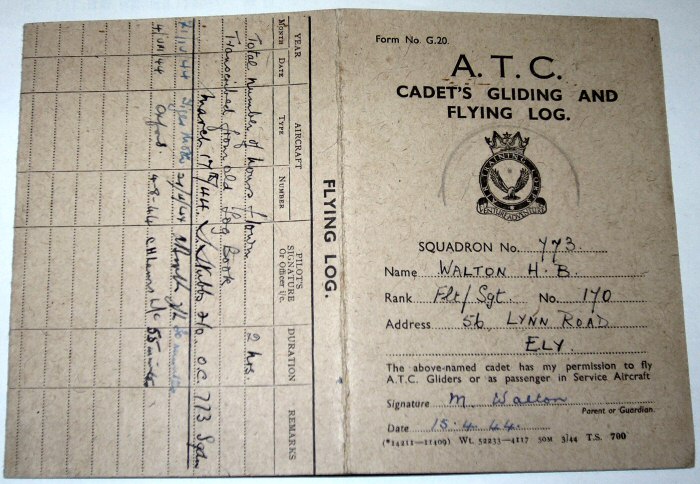 Form No. G.20.
A.T.C.
CADET'S GLIDING AND
FLYING LOG.
AIR TRAINING CORPS
VENTURE ADVENTURE
SQUADRON No. 773
Name WALTON H. B.
Rank Flt/Sgt. No. 170
Address 56, LYNN ROAD
ELY.
The above-named cadet has my permission to fly
A.T.C. Gliders or as passenger in Service Aircraft
Signature M. Walton
Parent or Guardian.
Date 15.4.44.
(*14211—11409) Wt. 52233—4117 50M 3/44 T.S. 700
FLYING LOG.
YEAR
MONTH DATE
AIRCRAFT
TYPE NUMBER
PILOT'S
SIGNATURE
Or Officer i/c.
DURATION
REMARKS
Total number of hours flown 2 hrs.
Transcribed from old Log Book
March 17th/44 Stubbs O.C. 773 Sqdn
44 Tiger Moth
4/VIII/44 Oxford. 4-8-44 55 mins